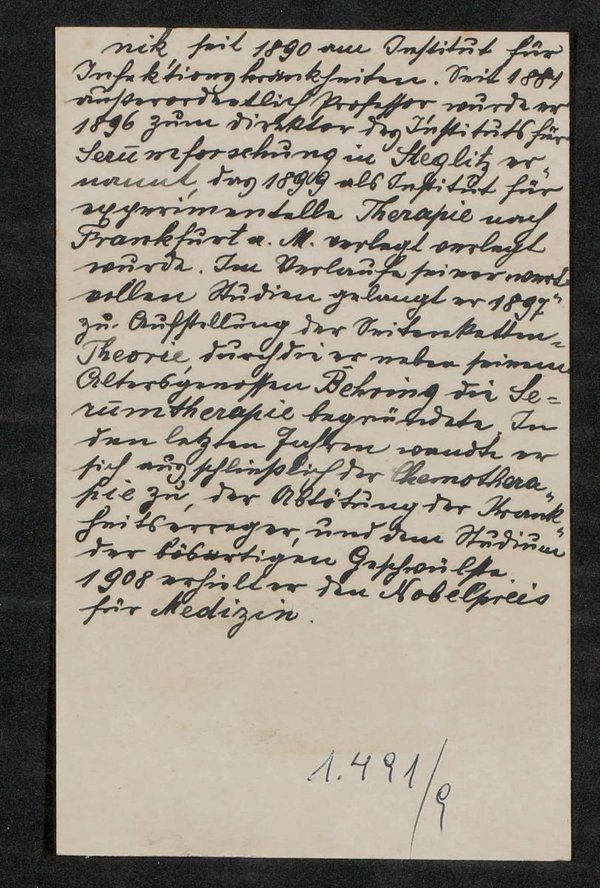 nik seit 1890 am Institut für
Infektionskrankheiten. Seit 1884
außerordentlich Professor wurde er
1896 zum Direktor des Instituts für
Serumforschung in Steglitz er"
nannt, das 1899 als Institut für
experimentelle Therapie nach
Frankfurt a. M. verlegt verlegt
wurde. Im Verlaufe seiner wert"
vollen Studien gelangt er 1897
zu Aufstellung der Seitenketten=
Theorie, durch die er neben seinem
Altersgenossen Behring die Se=
rumtherapie begründete. In
den letzten Jahren wandte er
sich ausschließlich der Chemothera"
pie zu, der Abtötung der Krank"
heitserreger, und dem Studium
der bösartigen Geschwülste.
1908 erhielt er den Nobelpreis
für Medizin.
1.491/9